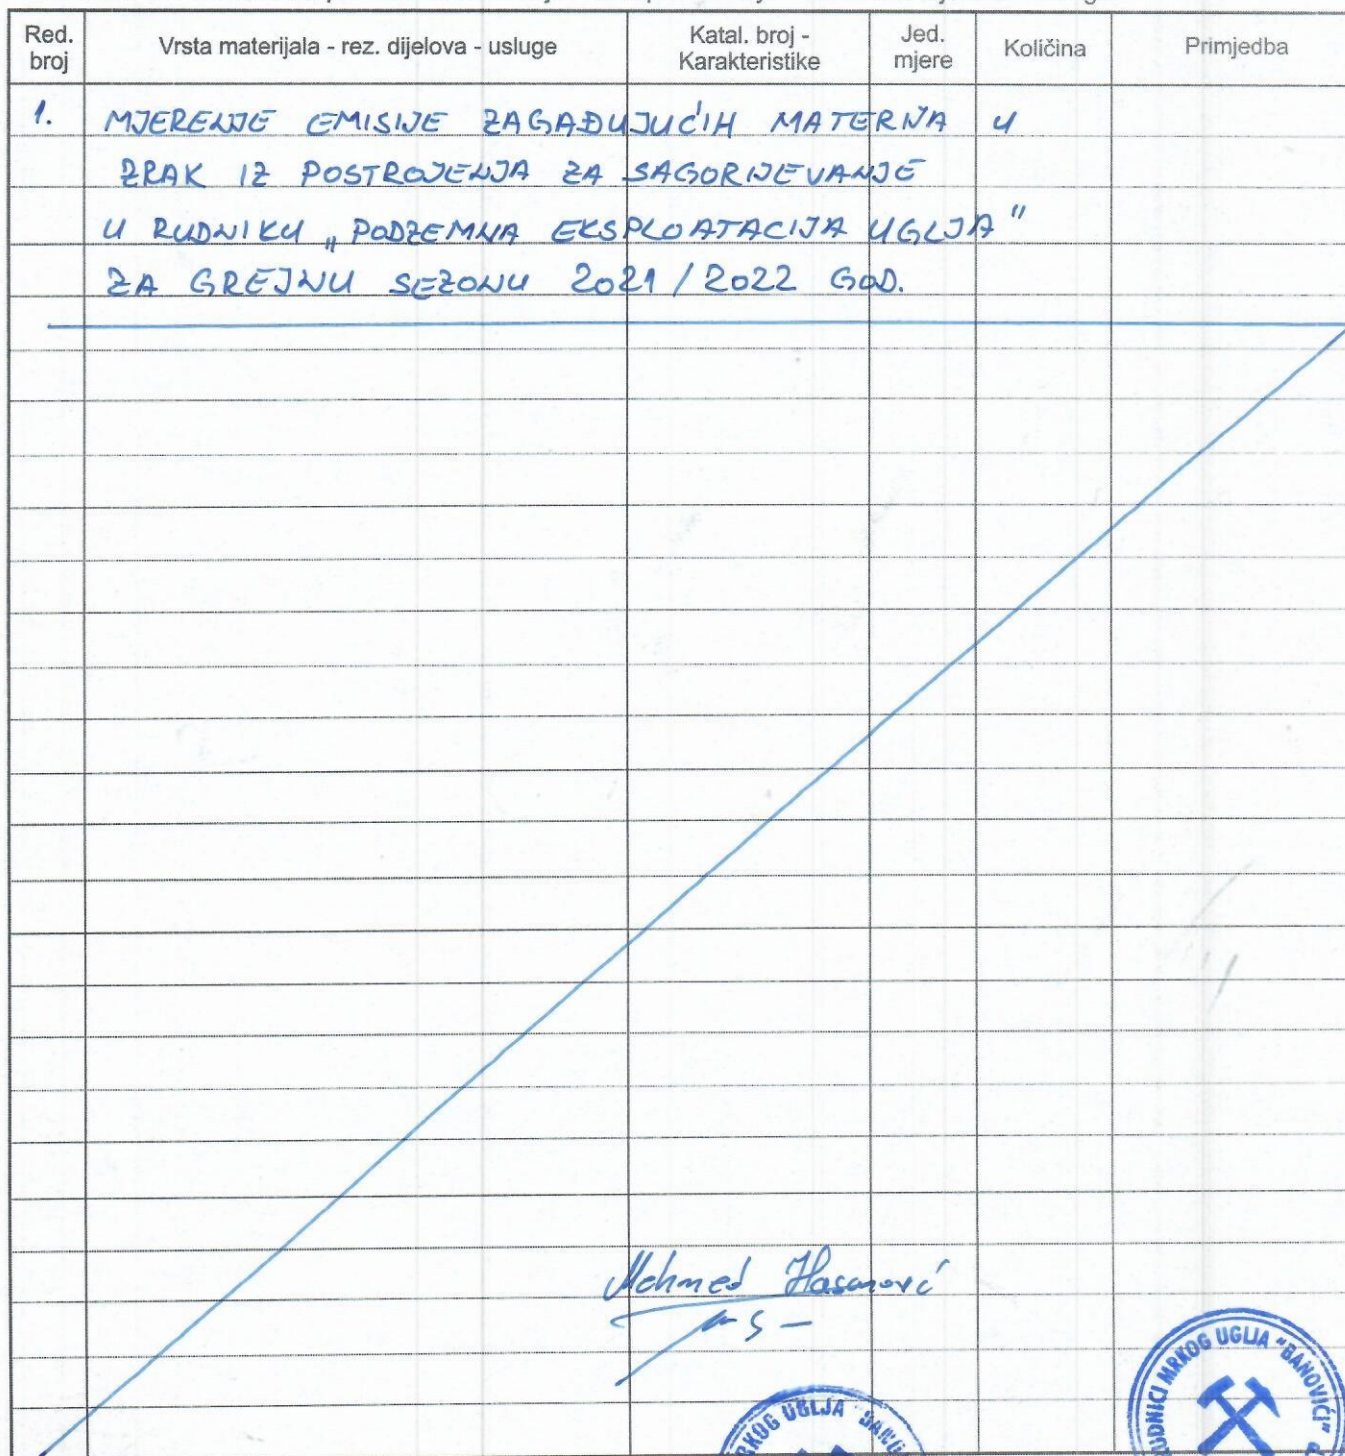 Red. broj
Vrsta materijala - rez. dijelova - usluge
Katal. broj - Karakteristike
Jed. mjere
Količina
Primjedba
1. MJERENJE EMISIJE ZAGAĐUJUĆIH MATERIJA U
ZRAK IZ POSTROJENJA ZA SAGORIJEVANJE
U RUDNIKU „PODZEMNA EKSPLOATACIJA UGLJA"
ZA GREJNU SEZONU 2021 / 2022 GOD.
Mehmed Hasanović
UGLJA
MRKOG UGLJA "BANOVIĆI"